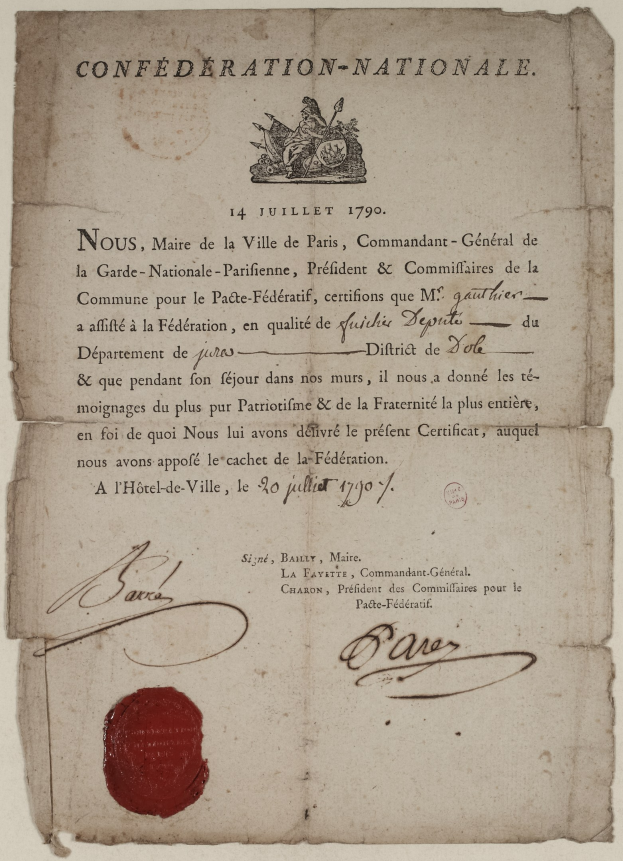 CONFÉDÉRATION-NATIONALE.
14 JUILLET 1790.
NOUS, Maire de la Ville de Paris, Commandant-Général de
la Garde-Nationale-Parisienne, Préſident & Commiſſaires de la
Commune pour le Pacte-Fédératif, certifions que Mr. gauthier
a aſſiſté à la Fédération, en qualité de Député du
Département de jura District de Dole
& que pendant ſon ſéjour dans nos murs, il nous a donné les té-
moignages du plus pur Patriotiſme & de la Fraternité la plus entière,
en foi de quoi Nous lui avons délivré le préſent Certificat, auquel
nous avons appoſé le cachet de la Fédération.
A l'Hôtel-de-Ville, le 20 juillet 1790
Signé, BAILLY, Maire.
LA FAYETTE, Commandant-Général.
CHARON, Préſident des Commiſſaires pour le
Pacte-Fédératif.